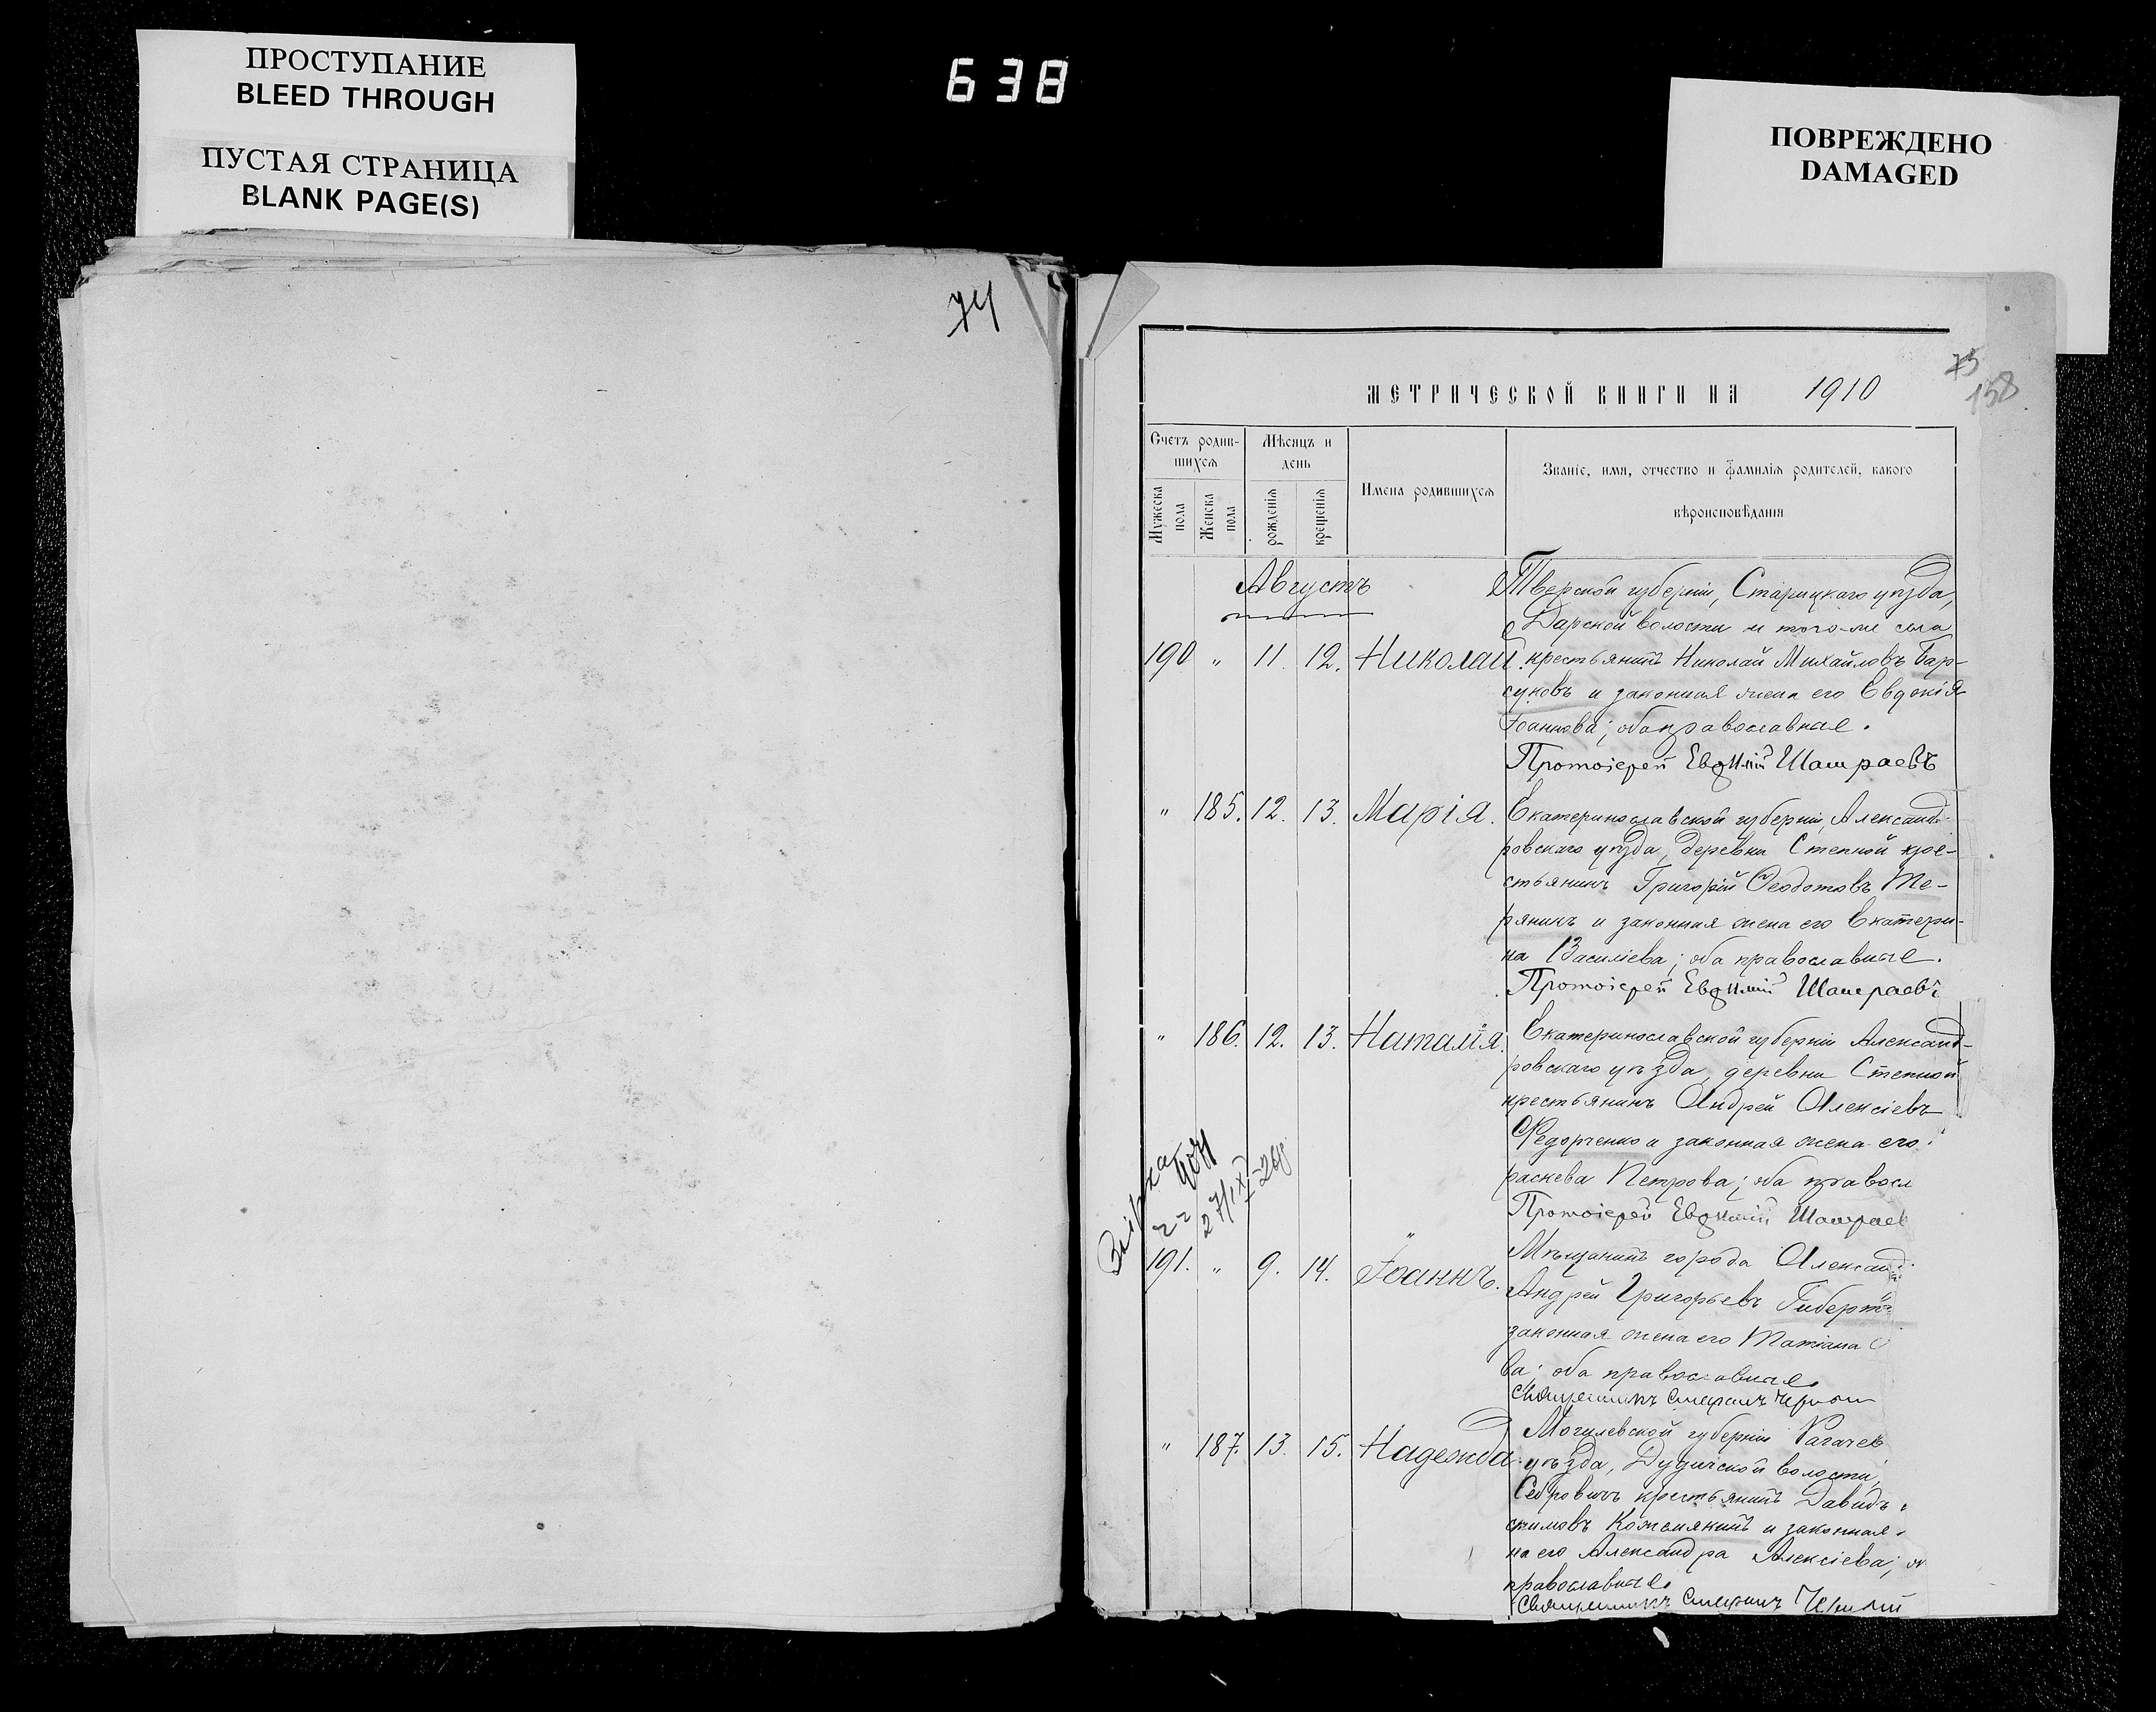 ПРОСТУПАНИЕ
BLEED THROUGH
ПУСТАЯ СТРАНИЦА
BLANK PAGE(S)
638
ПОВРЕЖДЕНО
DAMAGED
74
75
158
МЕТРИЧЕСКОЙ КНИГИ НА 1910
Счетъ родив-
шихся
Мужеска пола
Женска пола
Мѣсяцъ и
день
рожденія
крещенія
Имена родившихся
Званіе, имя, отчество и фамилія родителей, какого
вѣроисповѣданія
Августъ
190 " 11. 12. Николай.
Тверской губерніи, Старицкаго уѣзда,
Дарской волости и того-же села
крестьянинъ Николай Михайловъ Бар-
суковъ и законная жена его Евдокія
Іоаннова; оба православные.
Протоіерей Евѳимій Шашраевъ
" 185. 12. 13. Марія.
Екатеринославской губерніи, Александ-
ровскаго уѣзда, деревни Степной кре-
стьянинъ Григорій Ѳеодотовъ Те-
ряникъ и законная жена его Екатери-
на Василіева; оба православные.
Протоіерей Евѳимій Шашраевъ
" 186. 12. 13. Наталія.
Екатеринославской губерніи Александ-
ровскаго уѣзда, деревни Степной
крестьянинъ Андрей Алексіевъ
Федорченко и законная жена его
раскева Петрова; оба правосл
Протоіерей Евѳимій Шашраев
191. " 9. 14. Іоаннъ.
Мѣщанинъ города Александ
Андрей Григорьевъ Гиберт
законная жена его Татіана
ва; оба православные.
Священникъ
" 187. 13. 15. Надежда.
Могилевской губерніи Рагачев
уѣзда, Дудичской волости,
крестьянинъ Давидъ
симовъ Кожемякинъ и законная
на его Александра Алексіева; о
православные.
Священникъ